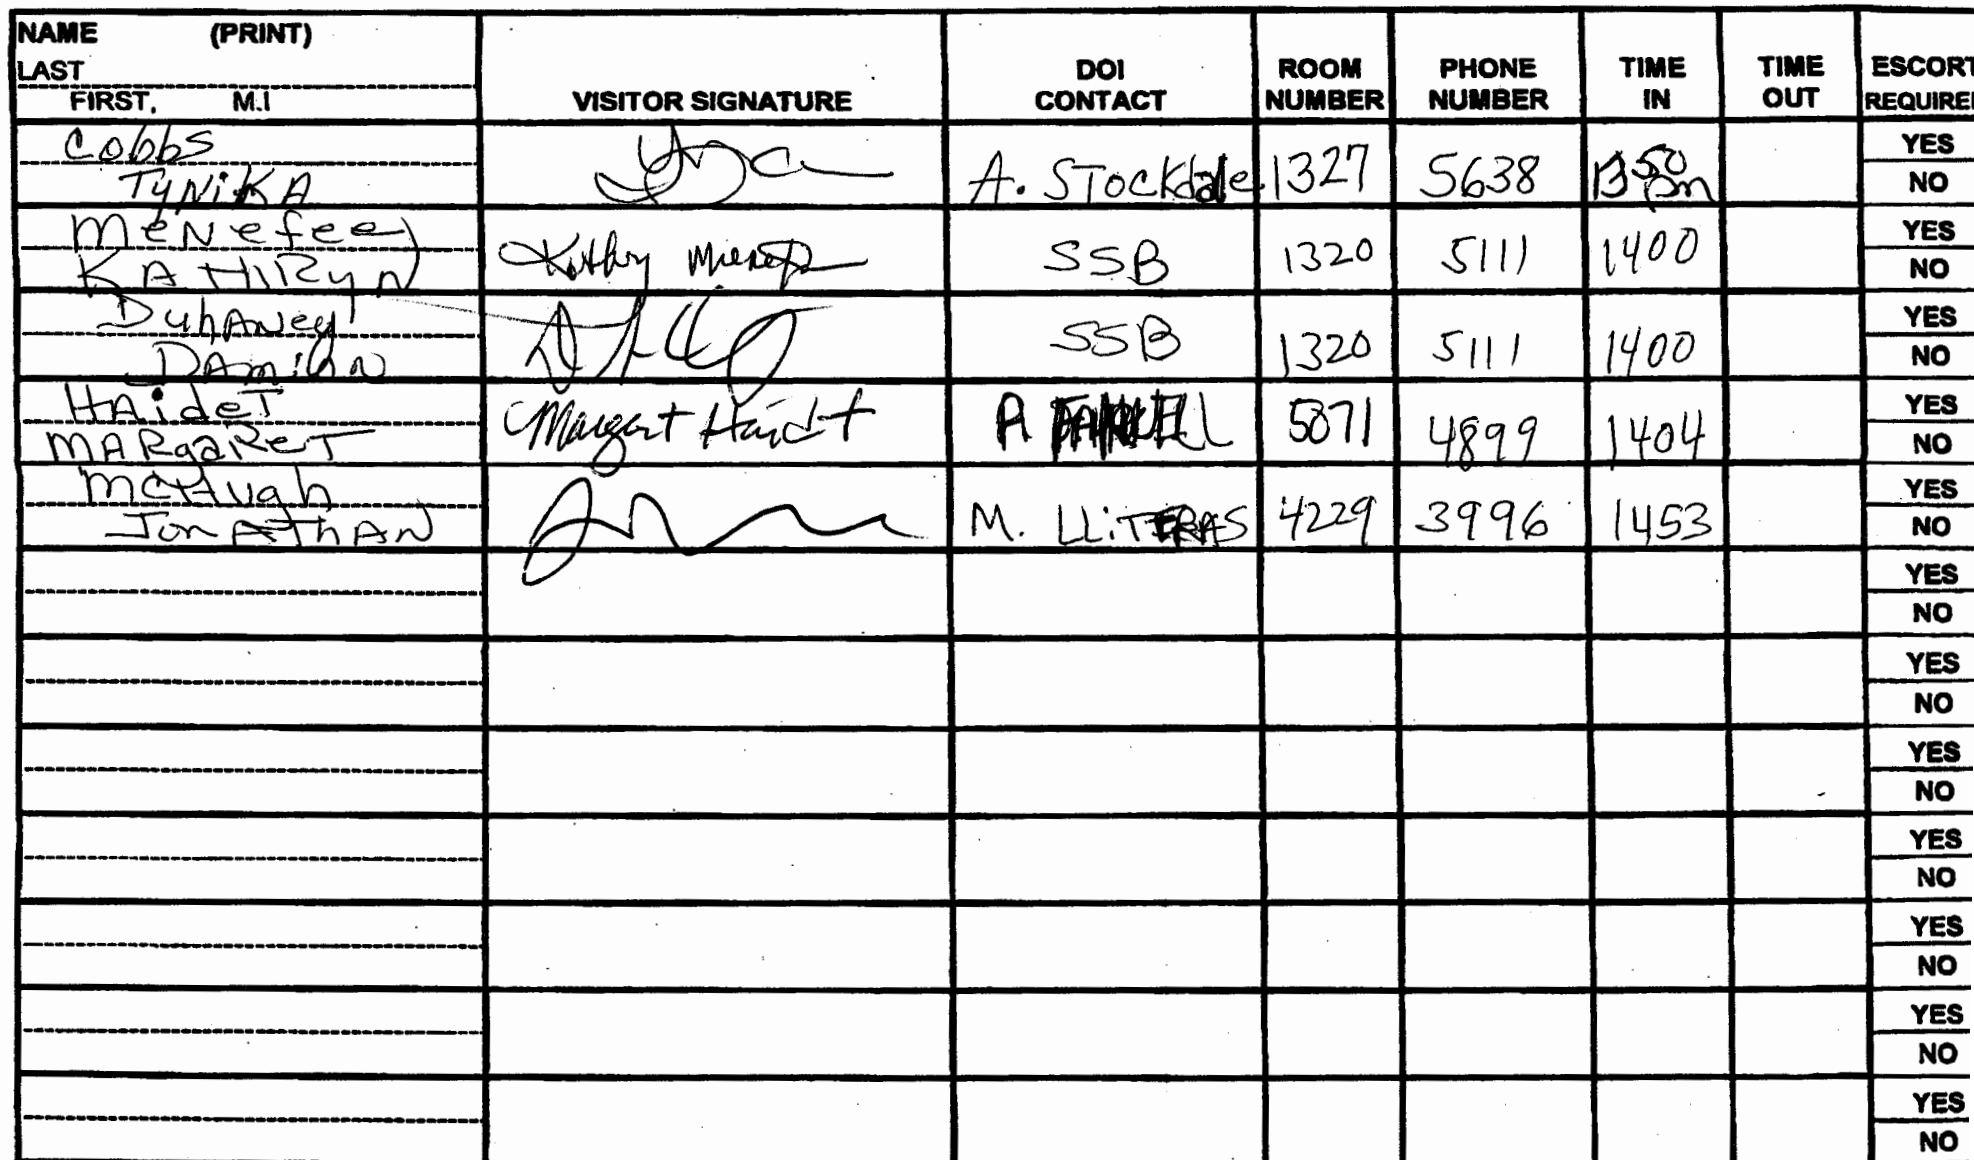 NAME (PRINT)
LAST
FIRST, M.I
VISITOR SIGNATURE
DOI
CONTACT
ROOM
NUMBER
PHONE
NUMBER
TIME
IN
TIME
OUT
ESCORT
REQUIRED
Cobbs
TYNIKA
A. STOCKdale 1327 5638
YES
NO
Menefee
KATHRYN
SSB 1320 5111 1400
YES
NO
DuhANey
DAmiAN
SSB 1320 5111 1400
YES
NO
HAideT
MARgaReT
Margaret Haidet
5071 4899 1404
YES
NO
McHugh
JonAThAN
M. LLiTERAS 4229 3996 1453
YES
NO
YES
NO
YES
NO
YES
NO
YES
NO
YES
NO
YES
NO
YES
NO